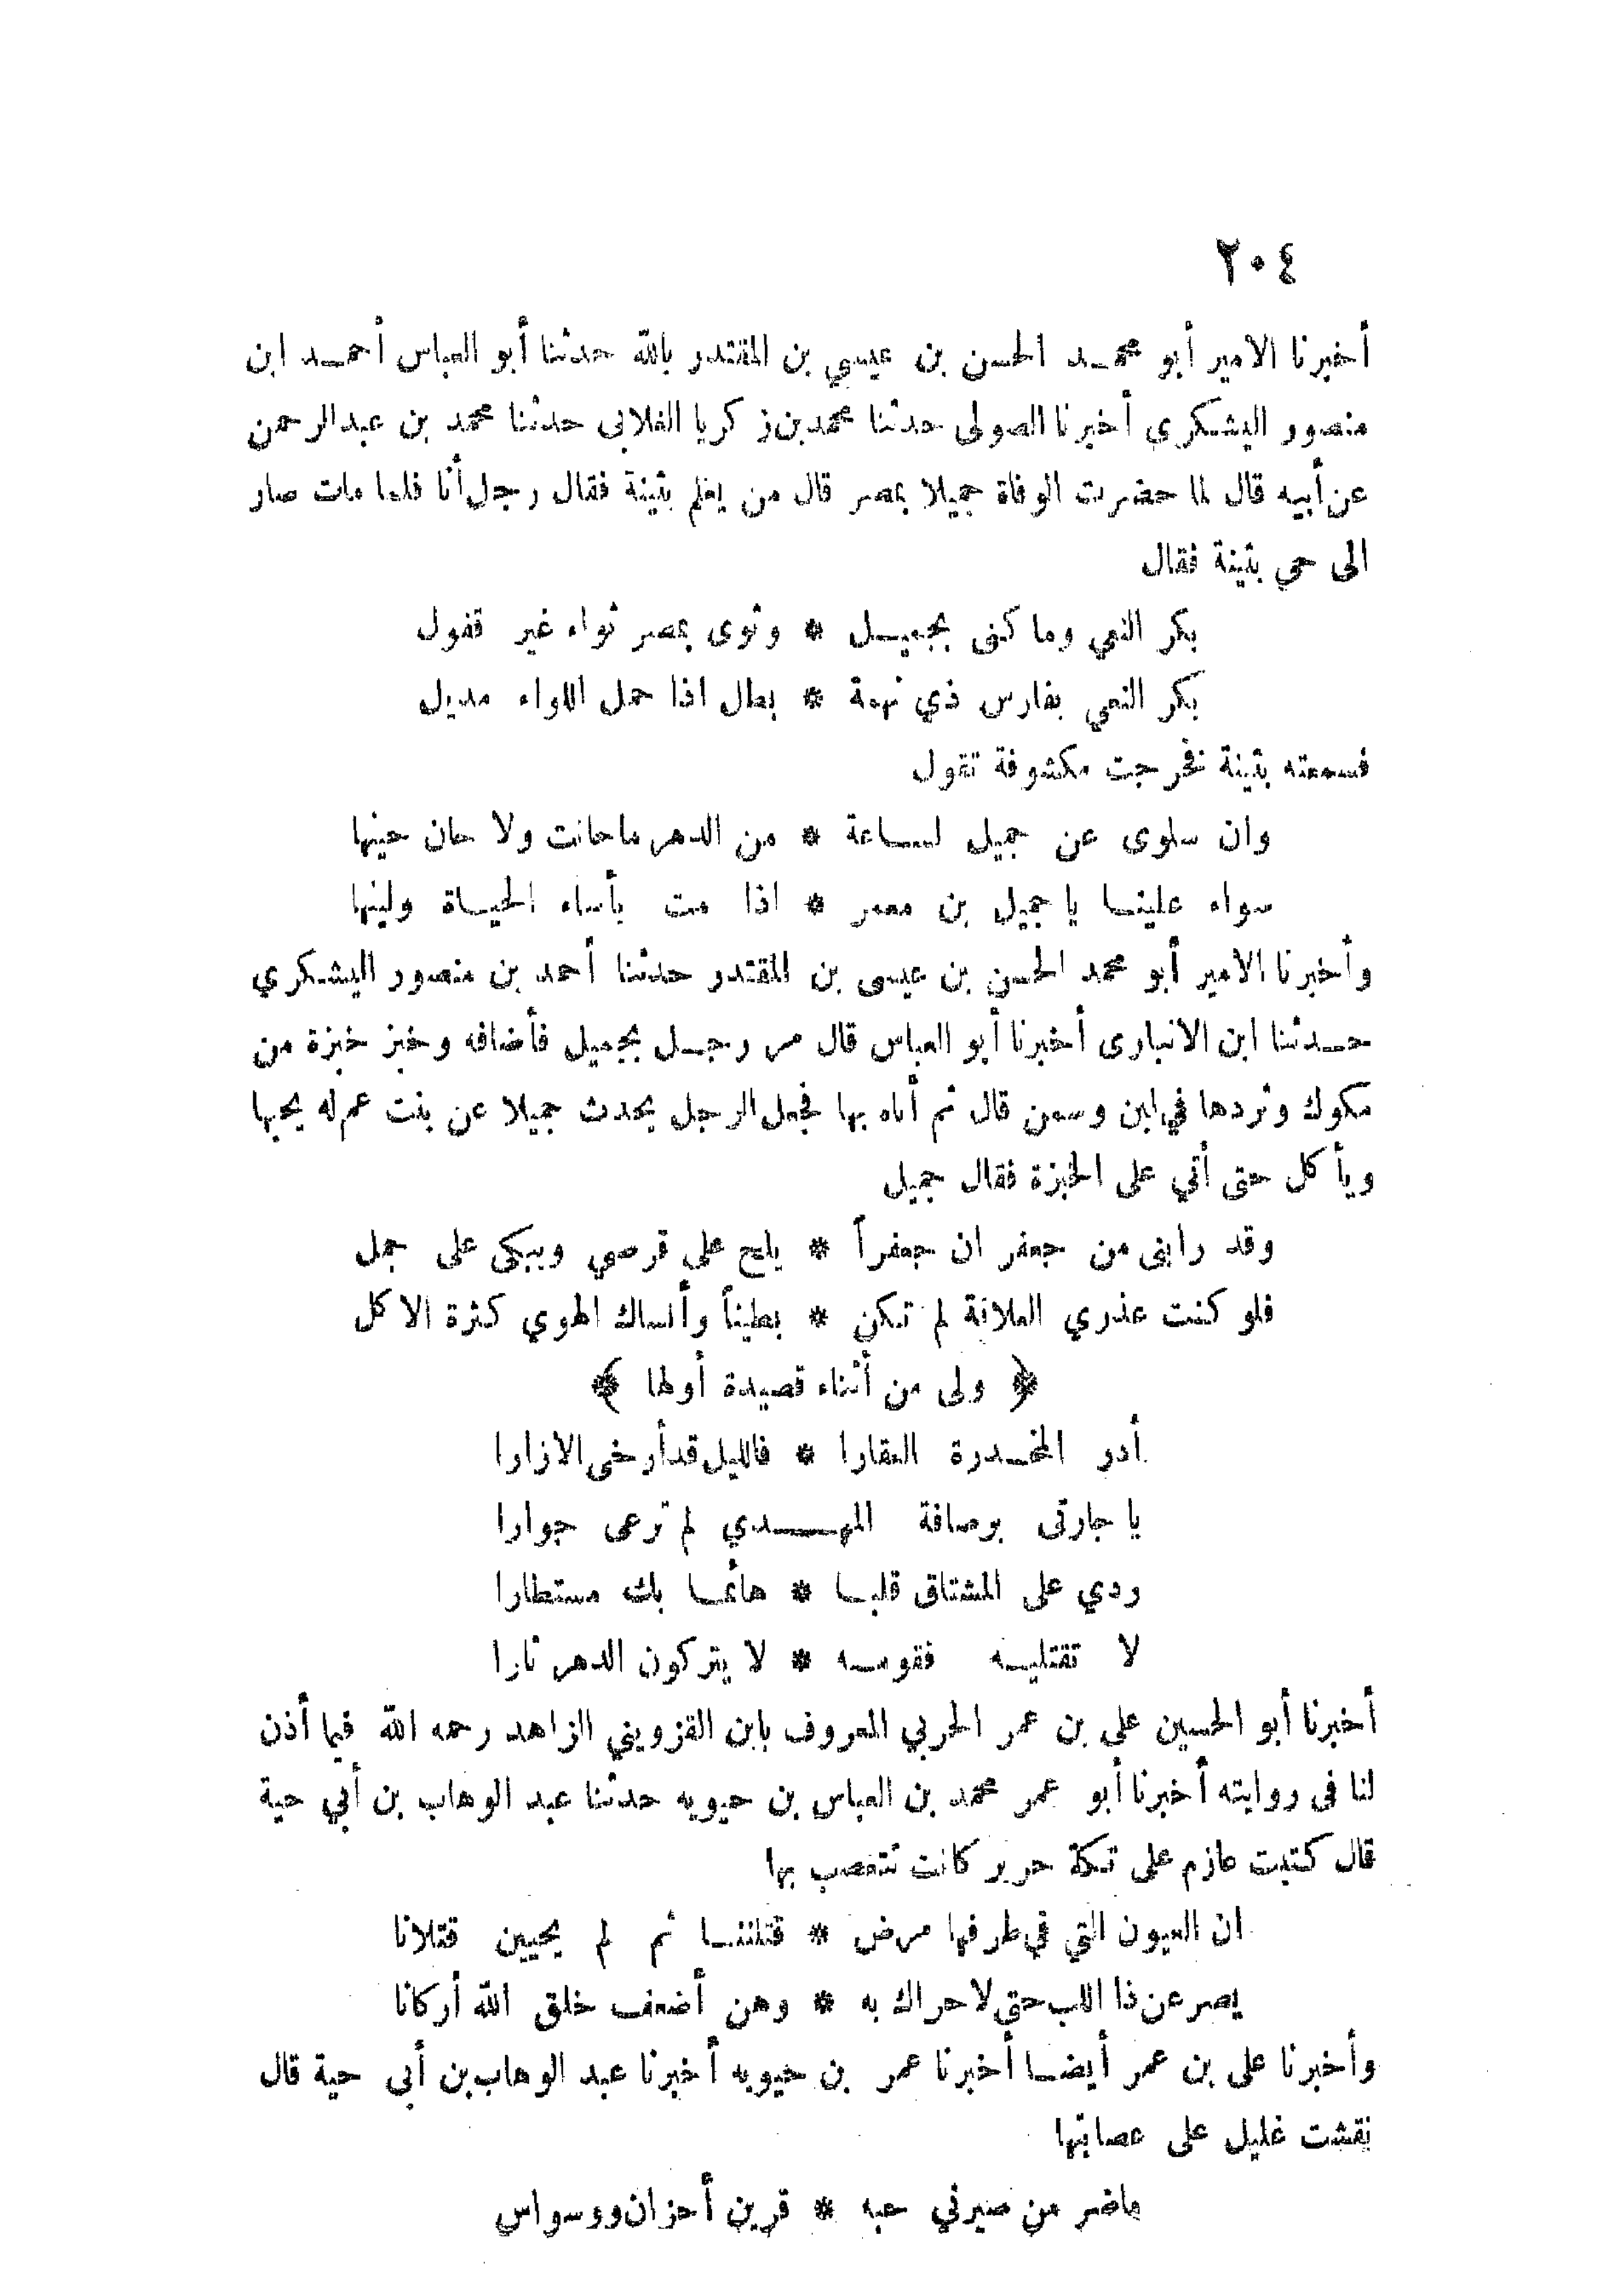 ٢٠٤
أخبرنا الامير أبو محمد الحسن بن عيسي بن المقتدر بالله حدثنا أبو العباس أحمد ابن
منصور اليشكرى أخبرنا الصولى حدثنا محمد بن زكريا الغلابى حدثنا محمد بن عبد الرحمن
عن أبيه قال لما حضرت الوفاة جميلا بمصر قال من يعلم بثينة فقال رجل أنا فلما مات صار
الى حي بثينة فقال
بكر النعي وما كنى بجميل * وثوى بمصر ثواء غير قفول
بكر النعي بفارس ذي نهمة * بطل اذا حمل اللواء مديل
فسمعته بثينة فخرجت مكشوفة تقول
وان سلوى عن جميل لساعة * من الدهر ماحانت ولا حان حينها
سواء علينا يا جميل بن معمر * اذا مت بأساء الحياة ولينها
وأخبرنا الامير أبو محمد الحسن بن عيسى بن المقتدر حدثنا أحمد بن منصور اليشكري
حدثنا ابن الانبارى أخبرنا أبو العباس قال مر رجل بجميل فأضافه وخبز خبزة من
مكوك وثردها في لبن وسمن قال ثم أتاه بها فجعل الرجل يحدث جميلا عن بنت عم له يحبها
ويأكل حتى أتي على الخبزة فقال جميل
وقد رابنى من جعفر ان جعفراً * يلح على قرصي ويبكى على جمل
فلو كنت عذري العلاقة لم تكن * بطيناً وأنساك الهوي كثرة الاكل
﴿ ولى من أثناء قصيدة أولها ﴾
أدر المخدرة العقارا * فالليل قد أرخى الازارا
يا جارتى برصافة المهدي لم ترعى جوارا
ردي على المشتاق قلبا * هائما بك مستطارا
لا تقتليه فقومه * لا يتركون الدهر ثارا
أخبرنا أبو الحسين على بن عمر الحربي المعروف بابن القزويني الزاهد رحمه الله فيما أذن
لنا فى روايته أخبرنا أبو عمر محمد بن العباس بن حيويه حدثنا عبد الوهاب بن أبي حية
قال كتبت عازم على تكة حرير كانت تتعصب بها
ان العيون التي في طرفها مرض * قتلننا ثم لم يحيين قتلانا
يصرعن ذا اللب حتى لا حراك به * وهن أضعف خلق الله أركانا
وأخبرنا على بن عمر أيضا أخبرنا عمر بن حيويه أخبرنا عبد الوهاب بن أبى حية قال
نقشت غليل على عصابتها
ماضر من صيرني حبه * قرين أحزان ووسواس